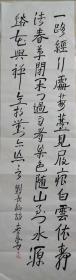 一路經行處莓苔見履痕白雲依靜
渚春草閉閑門過雨看松色隨山到水源
溪花與禪意相對亦忘言劉長卿詩